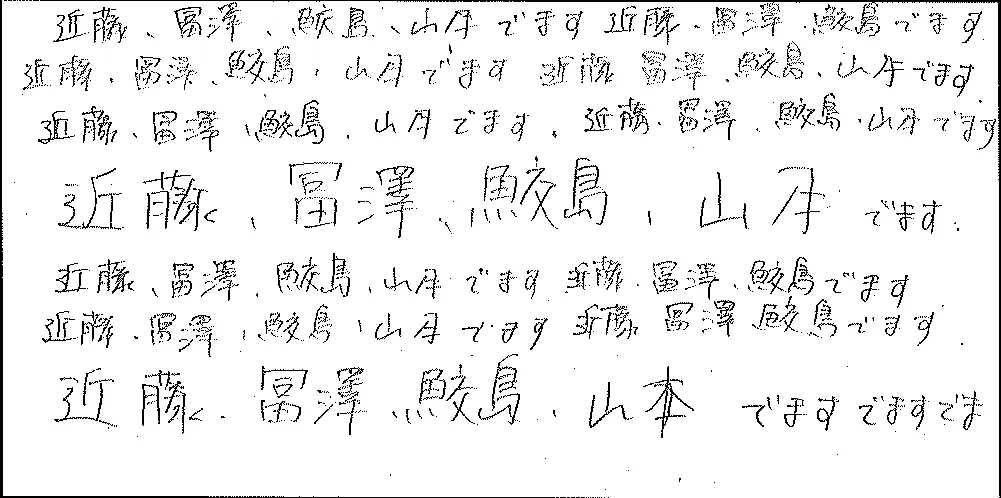 近藤、冨澤、鮫島、山本でます近藤、冨澤、鮫島でます
近藤、冨澤、鮫島、山本でます 近藤 冨澤、鮫島、山本でます
近藤、冨澤、鮫島、山本でます。近藤、冨澤、鮫島、山本でます
近藤、冨澤、鮫島、山本 でます.
近藤、冨澤、鮫島、山本でます 近藤、冨澤、鮫島でます
近藤、冨澤、鮫島、山本でます 近藤 冨澤 鮫島でます
近藤、冨澤、鮫島、山本 でますでますでま